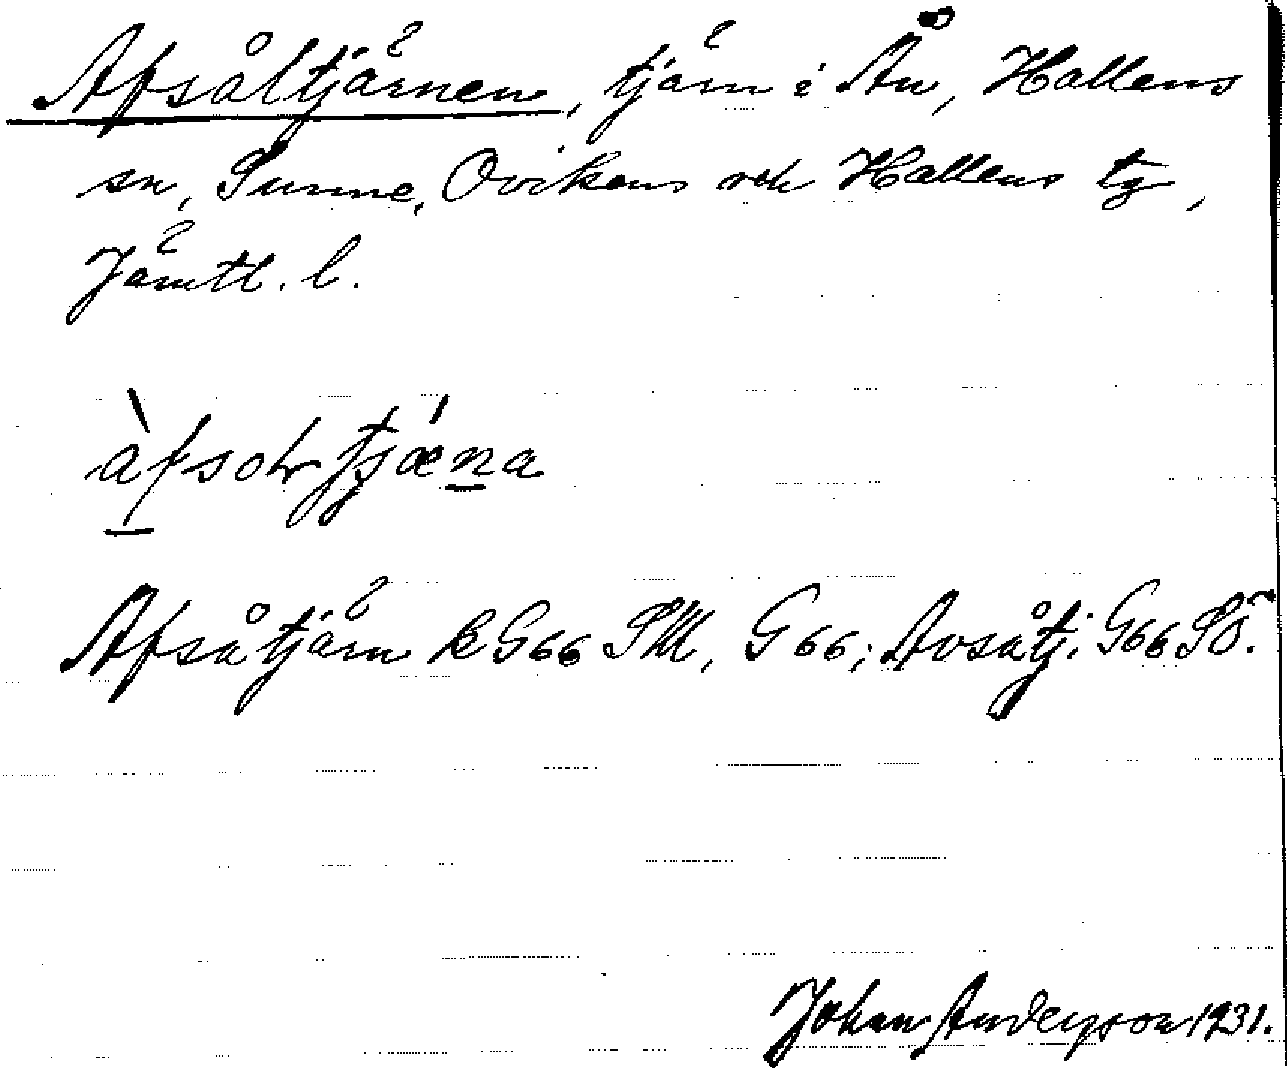 Afsåltjärnen, tjärn i Ån, Hallens
sn, Sunne, Ovikens och Hallens tg,
Jämtl. l.
Afsåtjärn k G66 SM, G66; Avsåtj. G66 SÖ.
Johan Anderson 1931.